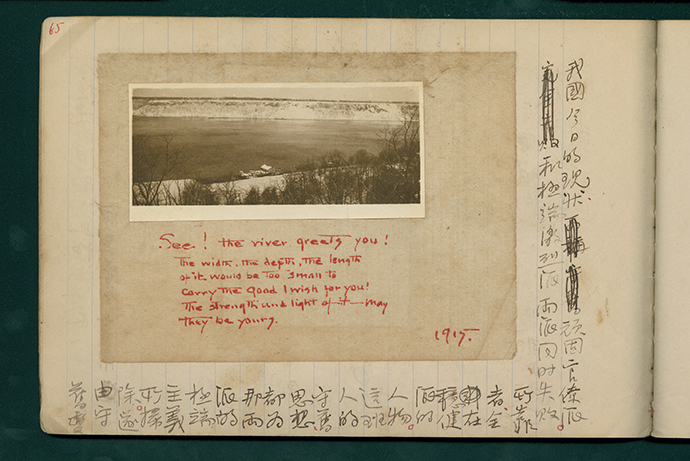 65
See! the river greets you!
The width, the depth, the length
of it would be too small to
carry the good I wish for you!
The strength and light of it — may
they be yours.
1915.
我國今日的現狀，頑固官僚派
和極端激烈派兩派同時失敗。
所靠
者全
在
穩健
派的
人物。
這班
人的
守舊
思想
都為
那兩
派的
極端
主義
所掃
除。遂
由守